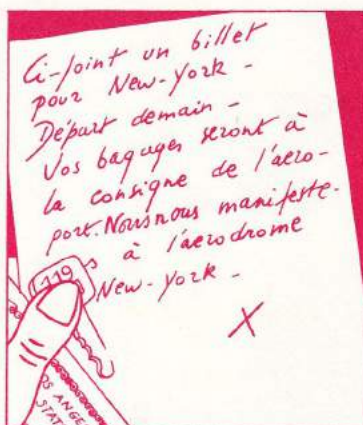 Ci-joint un billet
pour New-York -
Départ demain -
Vos bagages seront à
la consigne de l'aéro-
port. Nous nous manifeste-
à l'aérodrome
New-York -
X
119
OS ANGE
STAT